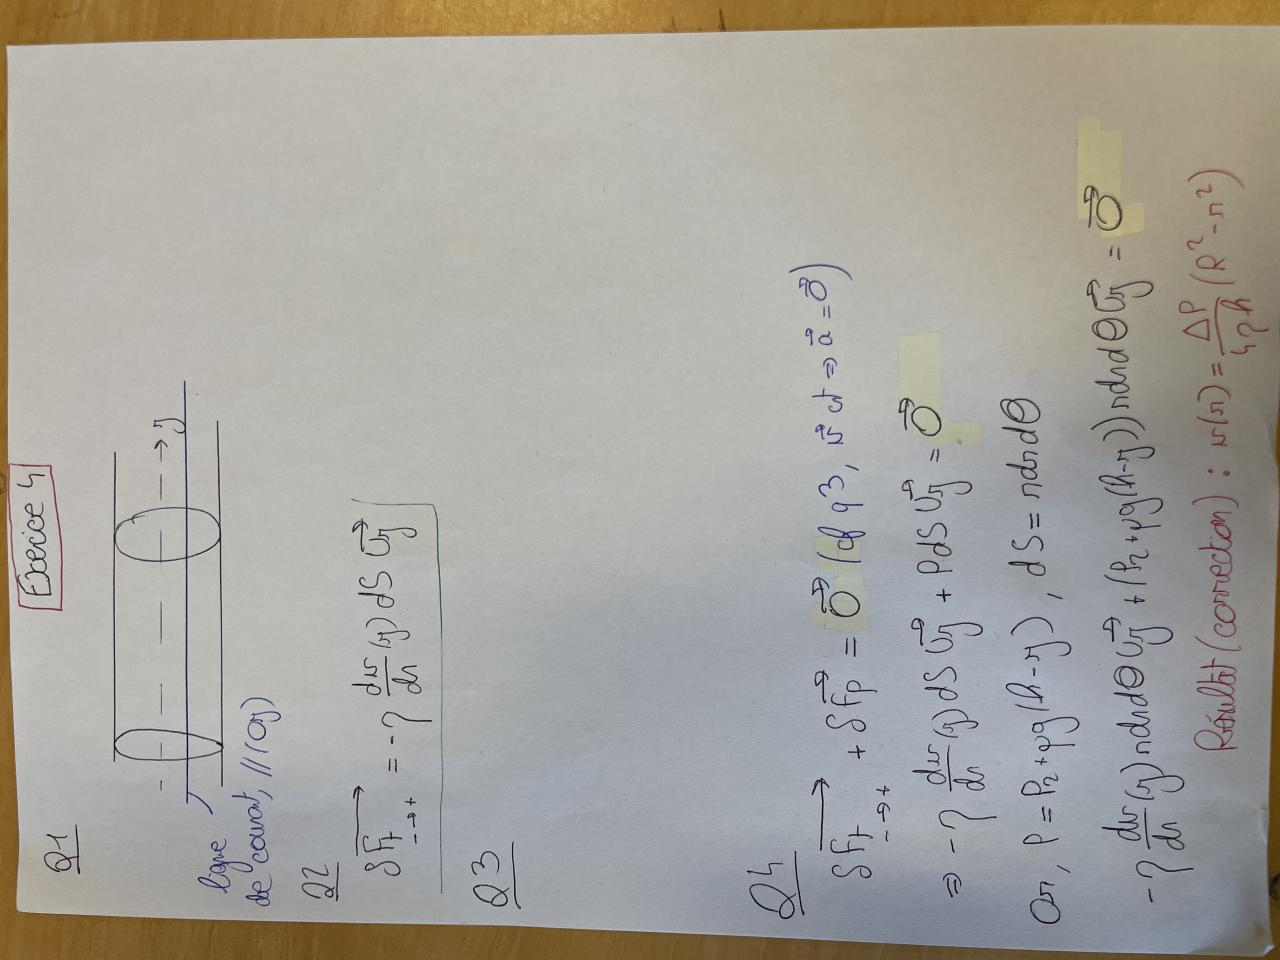 Exercice 4
Q1
→ y
ligne
de courant, //(Oy)
Q2
δFt -→+ = -η dv/dr (y) dS Uy
Q3
Q4
δFt -→+ + δFp = 0 (cf q3, v ct ⇒ a = 0)
⇒ -η dv/dr (y) dS Uy + P dS Uy = 0
Or, P = P2 + ρg(h-y), dS = rdrdθ
-η dv/dr (y) rdrdθ Uy + (P2 + ρg(h-y)) rdrdθ Uy = 0
Résultat (correction) : v(r) = ΔP/4ηh (R² - r²)